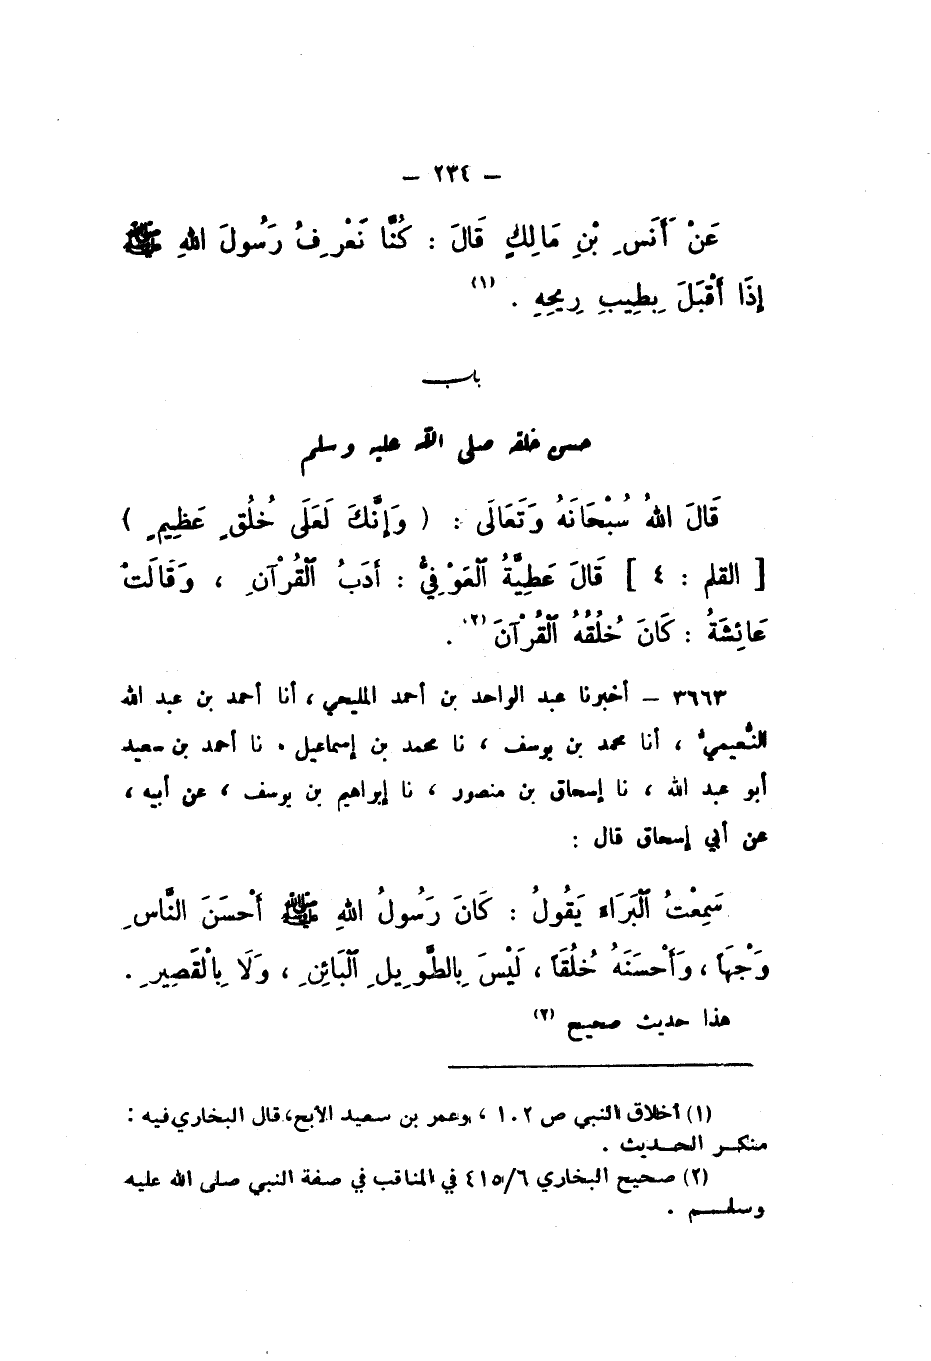 – ٢٣٤ –
عَنْ أَنَسِ بْنِ مَالِكٍ قَالَ : كُنَّا نَعْرِفُ رَسُولَ اللهِ ﷺ
إِذَا أَقْبَلَ بِطِيبِ رِيحِهِ . (١)
باب
حسن خلقه صلى الله عليه وسلم
قَالَ اللهُ سُبْحَانَهُ وَتَعَالَى : ( وَإِنَّكَ لَعَلَى خُلُقٍ عَظِيمٍ )
[ القلم : ٤ ] قَالَ عَطِيَّةُ ٱلْعَوْفِيُّ : أَدَبُ ٱلْقُرْآنِ ، وَقَالَتْ
عَائِشَةُ : كَانَ خُلُقُهُ ٱلْقُرْآنَ (٢) .
٣٦٦٣ – أخبرنا عبد الواحد بن أحمد المليحي ، أنا أحمد بن عبد الله
النُّعيميُّ ، أنا محمد بن يوسف ، نا محمد بن إسماعيل . نا أحمد بن سعيد
أبو عبد الله ، نا إسحاق بن منصور ، نا إبراهيم بن يوسف ، عن أبيه ،
عن أبي إسحاق قال :
سَمِعْتُ ٱلْبَرَاءَ يَقُولُ : كَانَ رَسُولُ اللهِ ﷺ أَحْسَنَ النَّاسِ
وَجْهَاً ، وَأَحْسَنَهُ خُلُقَاً ، لَيْسَ بِالطَّوِيلِ ٱلْبَائِنِ ، وَلَا بِالْقَصِيرِ .
هذا حديث صحيح (٢)
(١) أخلاق النبي ص ١٠٢ ، وعمر بن سعيد الأبح، قال البخاري فيه :
منكر الحديث .
(٢) صحيح البخاري ٤١٥/٦ في المناقب في صفة النبي صلى الله عليه
وسلم .